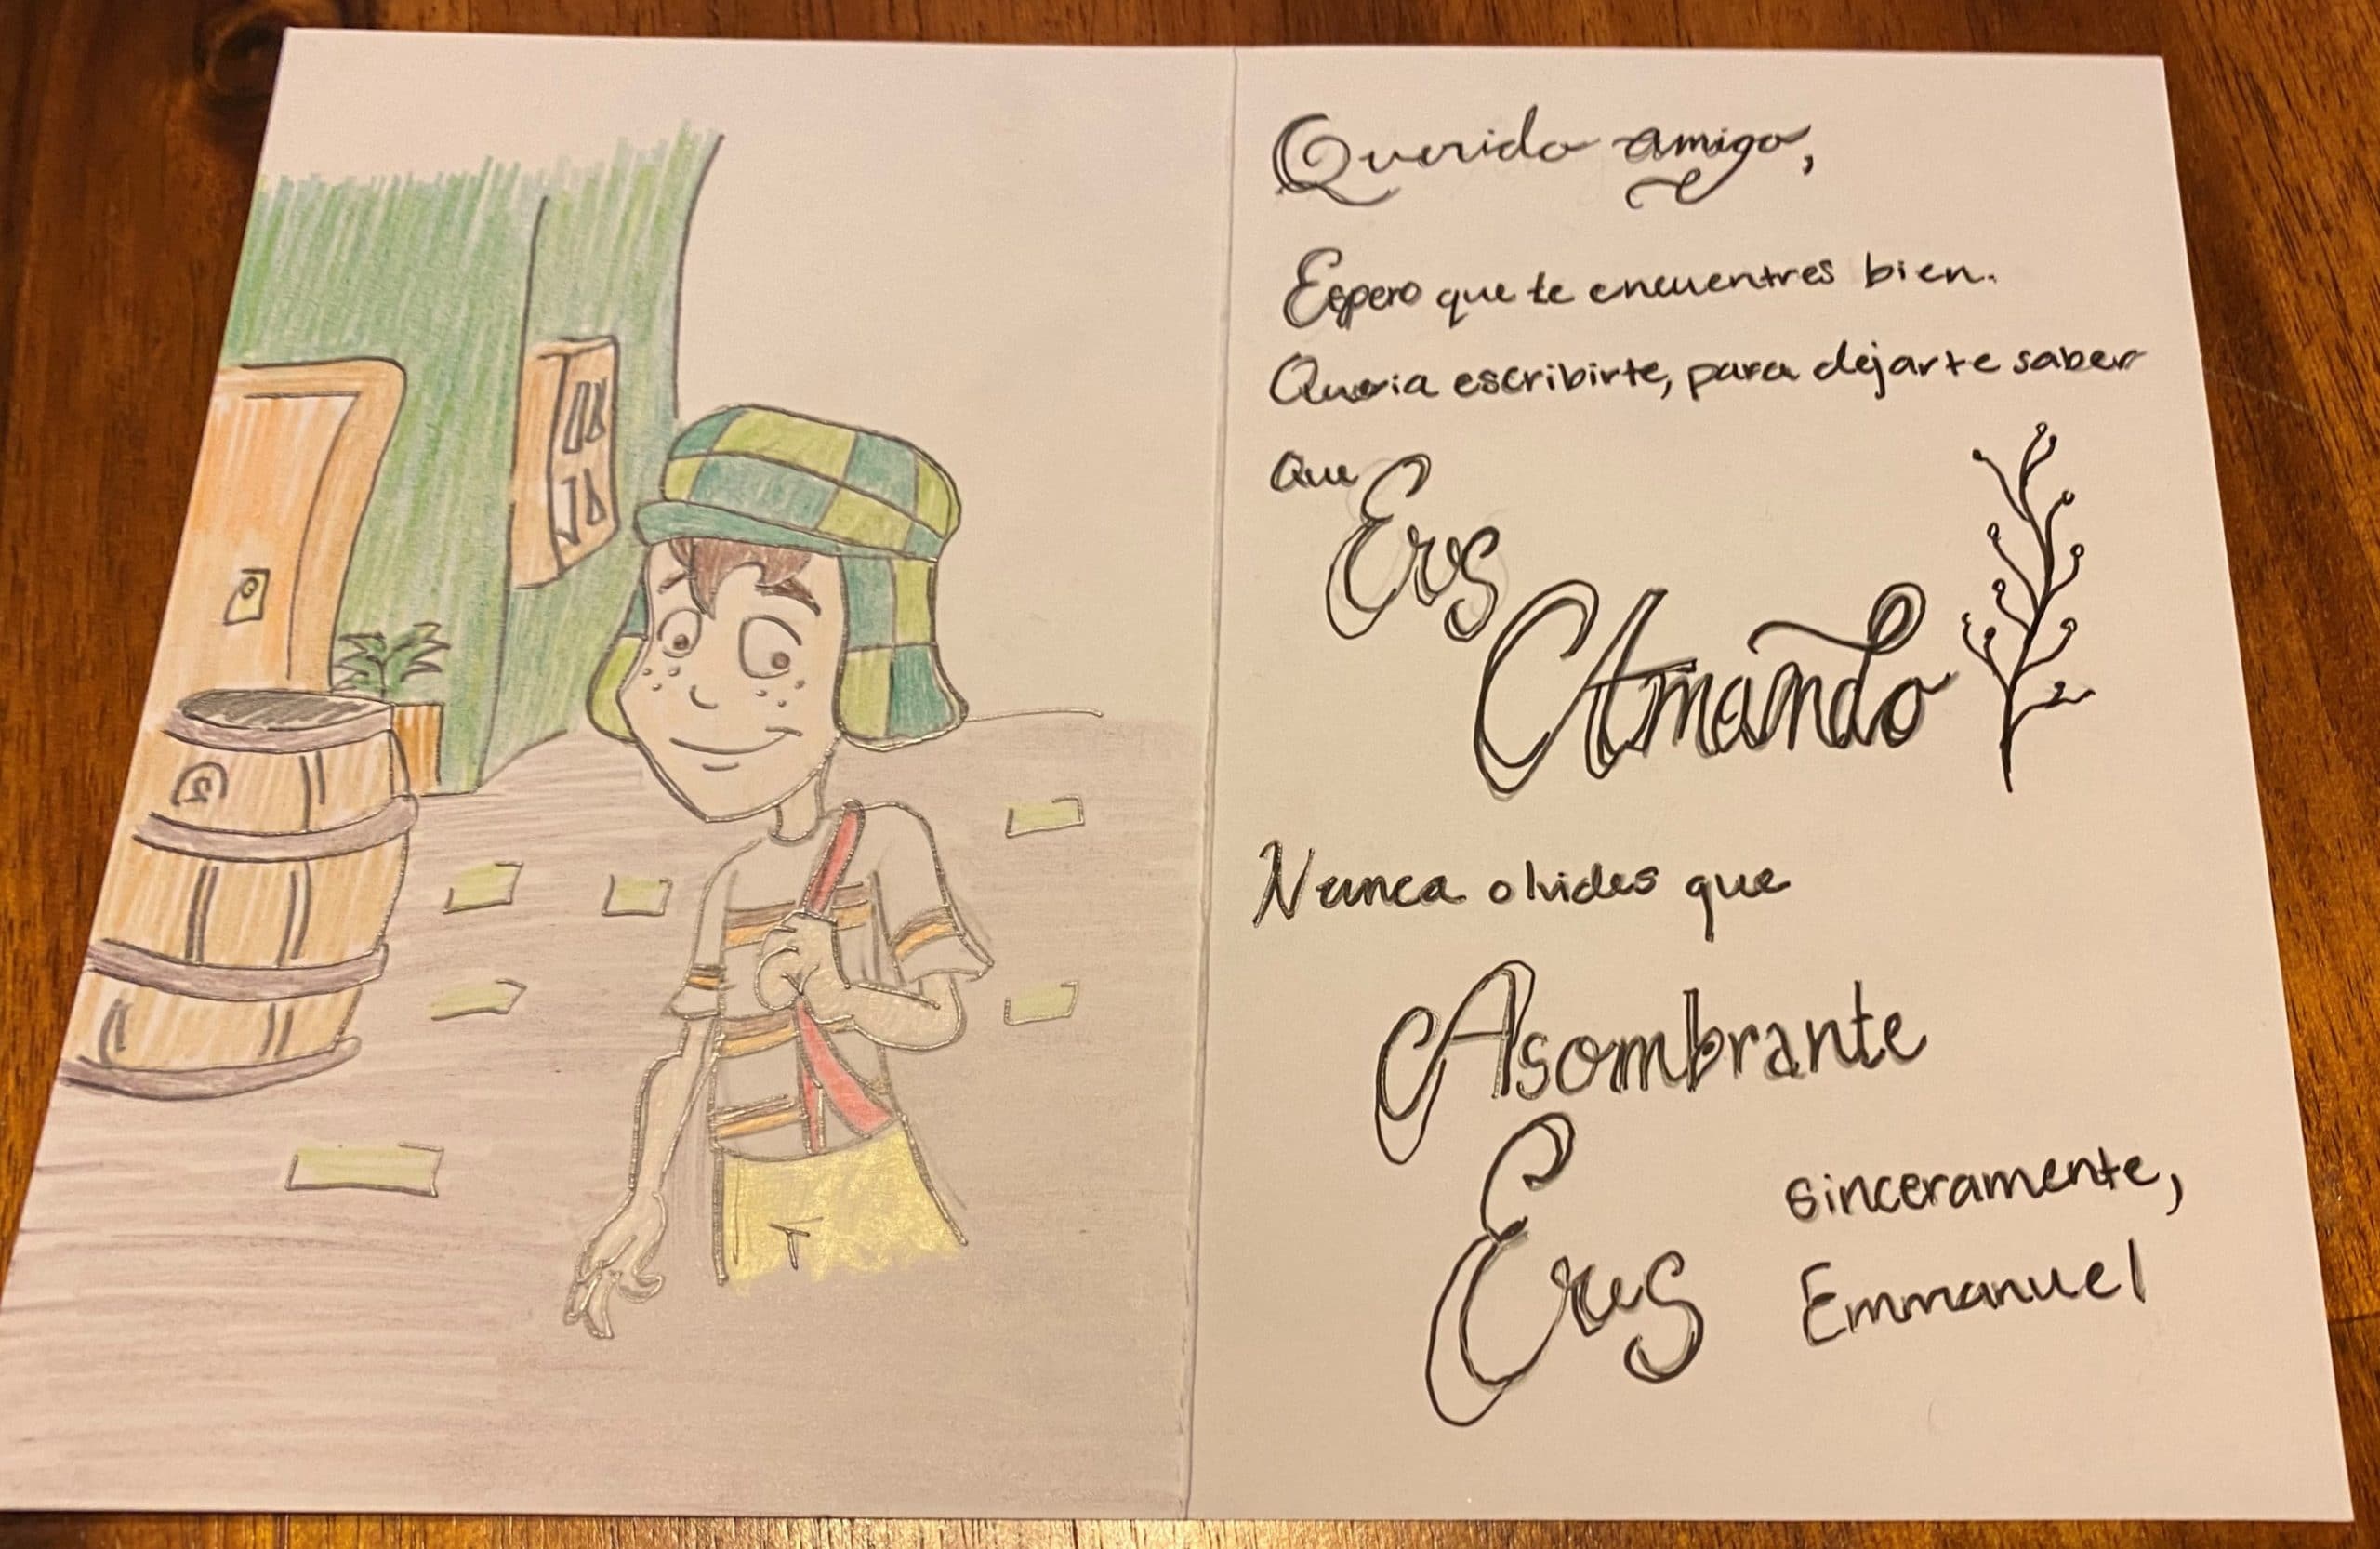 Querido amigo,
Espero que te encuentres bien.
Queria escribirte, para dejarte saber
que Eres
Amando
Nunca olvides que
Asombrante
Eres
sinceramente,
Emmanuel